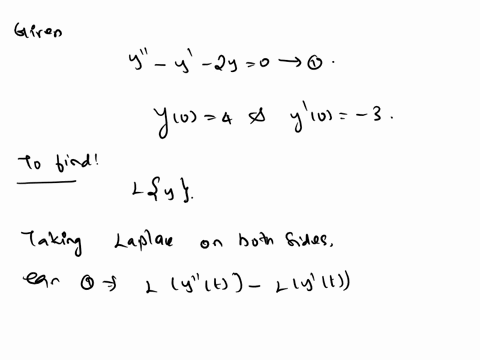 Given
y'' - y' - 2y = 0 → ①.
y(0) = 4 & y'(0) = -3.
To find!
L{y}.
Taking Laplae on both sides,
eqn ① ⇒ L(y''(t)) - L(y'(t))